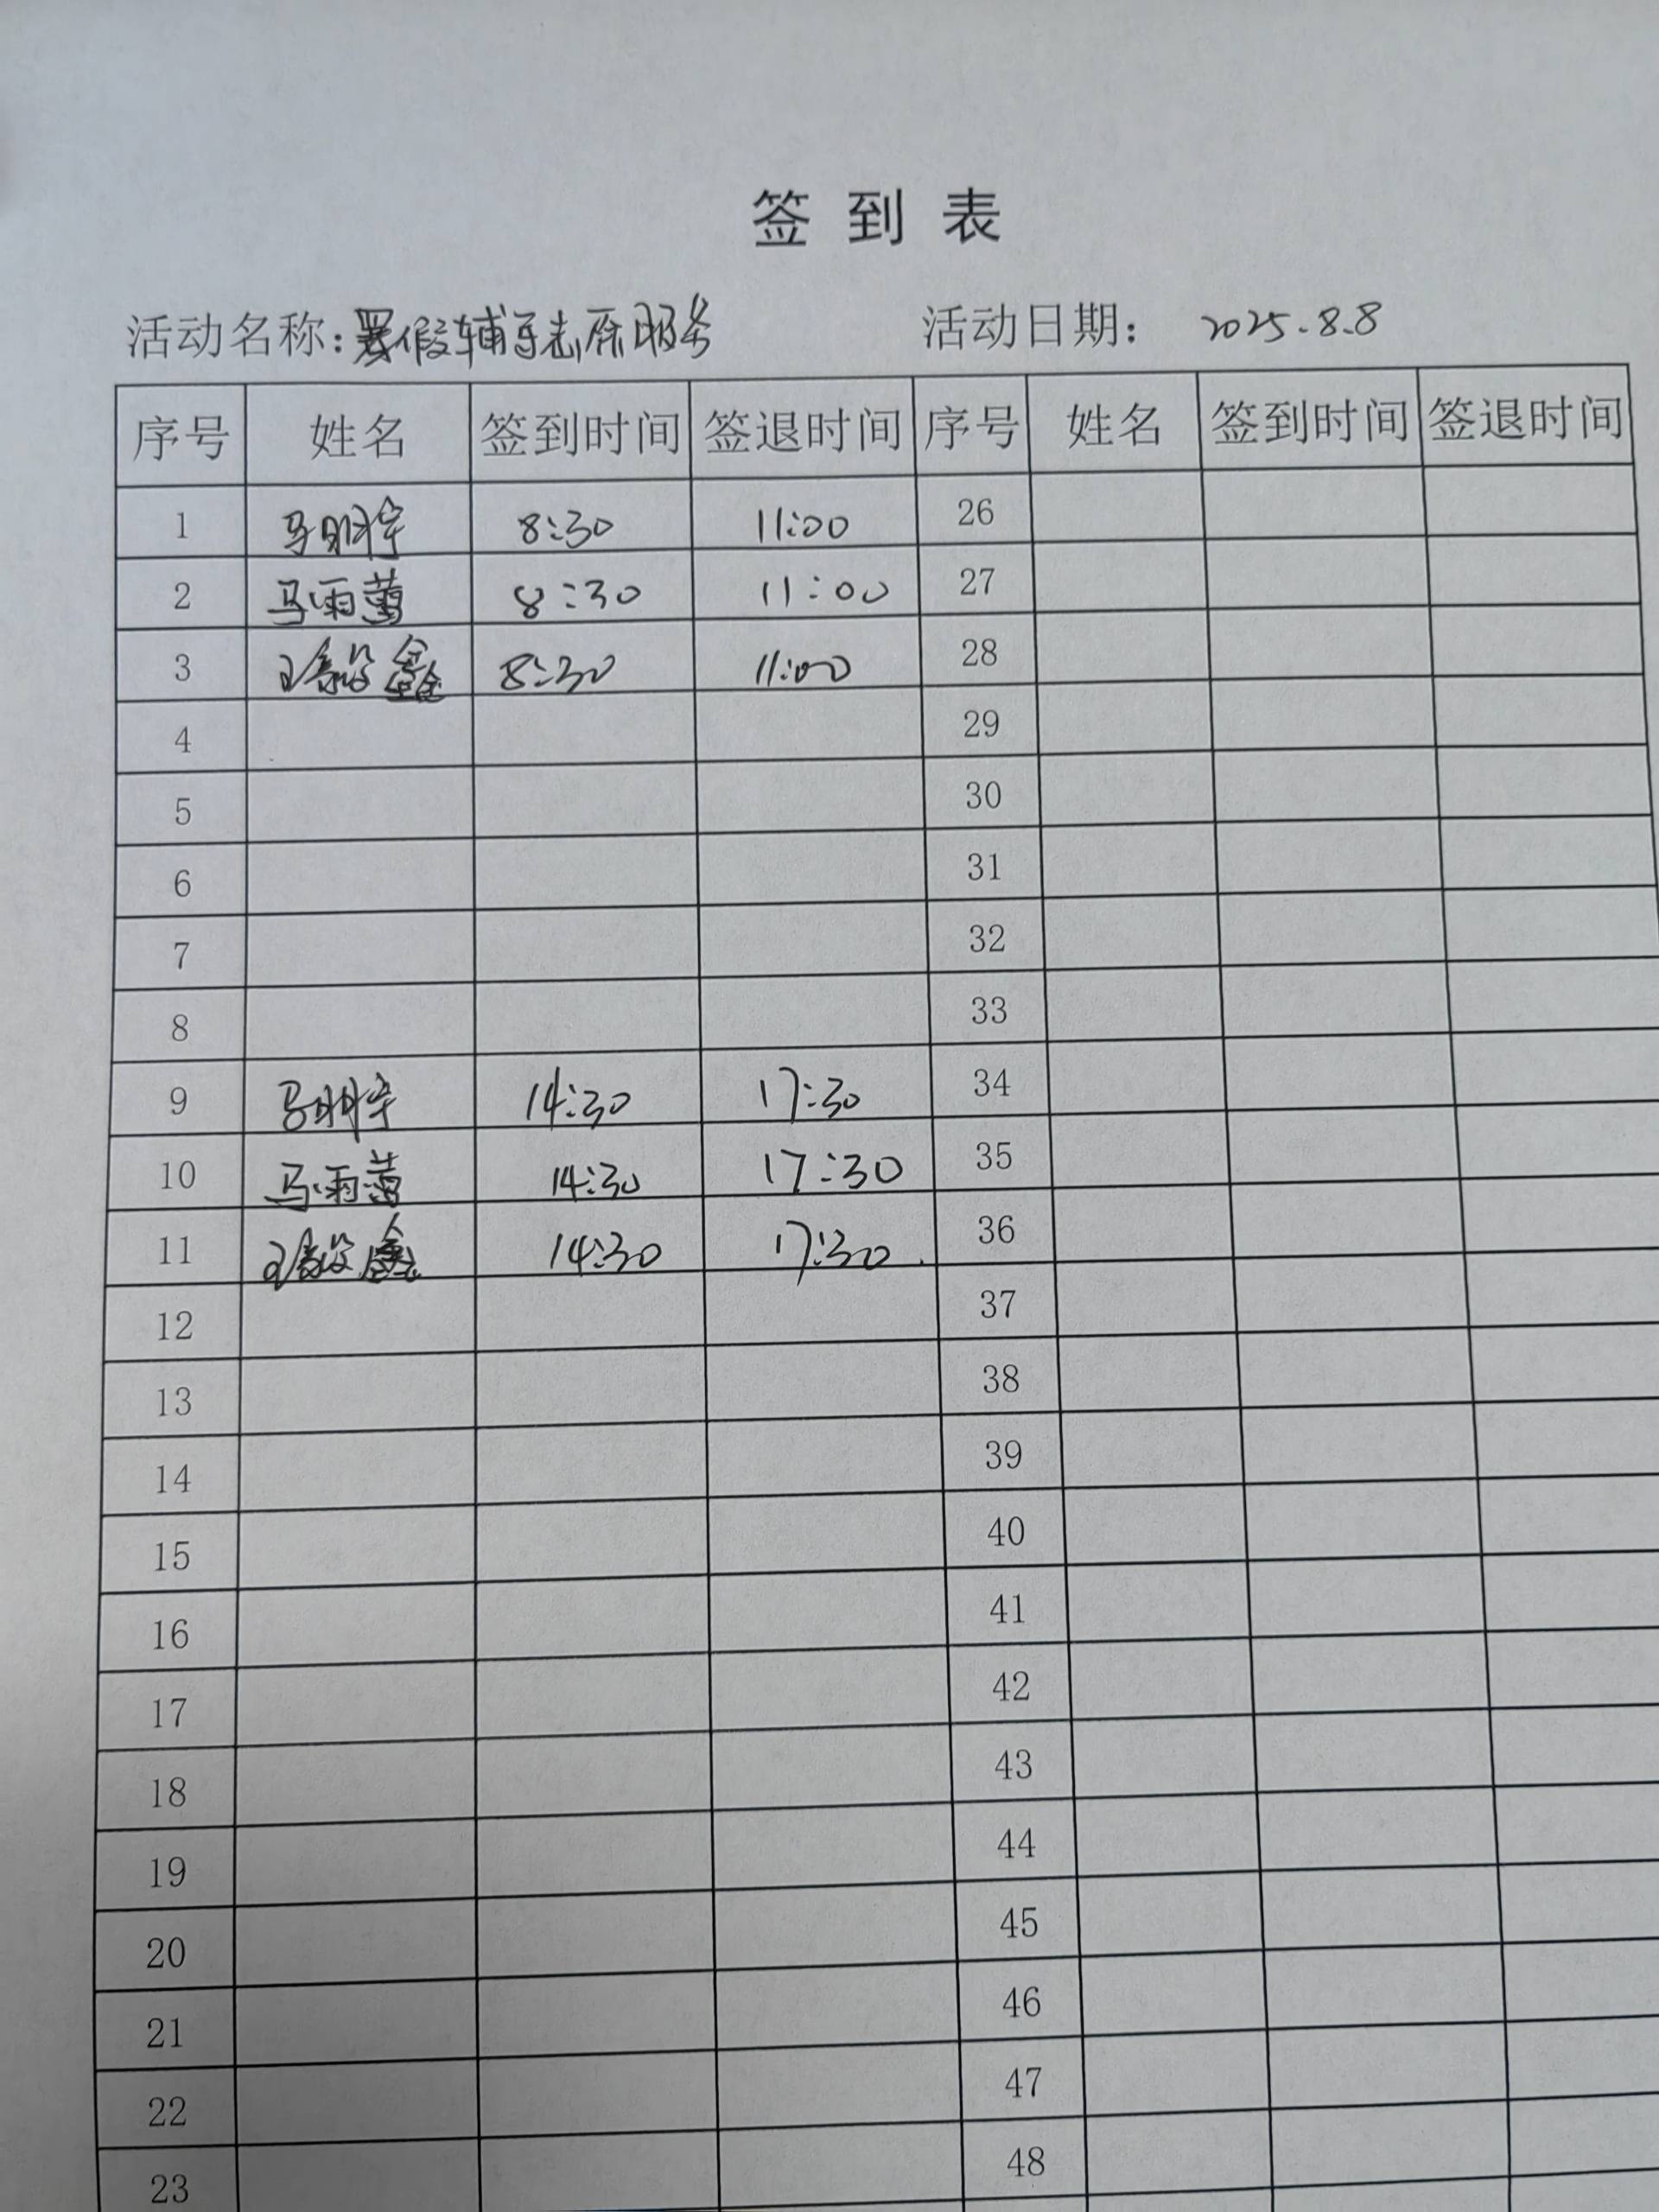 签到表
活动名称：暑假辅导志愿服务 活动日期： 2025.8.8
序号 姓名 签到时间 签退时间 序号 姓名 签到时间 签退时间
1 马明宇 8:30 11:00 26
2 马雨薇 8:30 11:00 27
3 鑫 8:30 11:00 28
4 29
5 30
6 31
7 32
8 33
9 马明宇 14:30 17:30 34
10 马雨薇 14:30 17:30 35
11 鑫 14:30 17:30 36
12 37
13 38
14 39
15 40
16 41
17 42
18 43
19 44
20 45
21 46
22 47
23 48